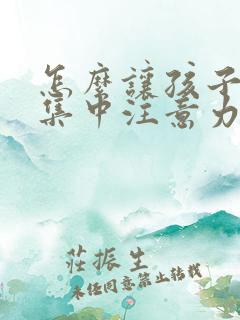 怎麼讓孩子
集中注意力
莊振生
未任同意禁止转载